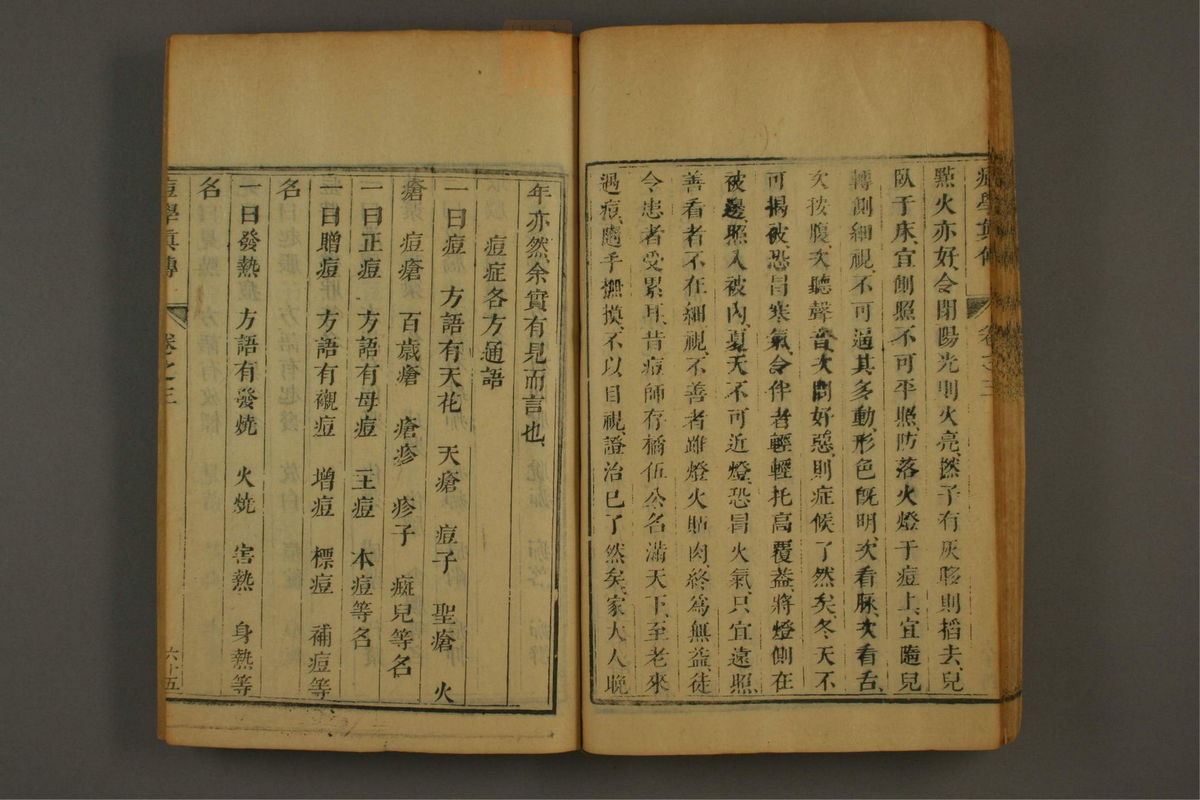 痘學眞傳 卷之三
㸃火亦好、令閉陽光、則火亮、撚子有灰、𨒪則搯去、兒
臥于床、宜側照、不可平照、防落火燈于痘上、宜隨兒
轉側細視、不可逼其多動、形色旣明、次看脉、次看舌、
次按腹、次聽聲音、次問好惡、則症候了然矣、冬天不
可揭被、恐冒寒氣、令伴者輕輕托高覆葢、將燈側在
被邊、照入被內、夏天不可近燈、恐冒火氣、只宜遠照、
善看者不在細視、不善者雖燈火貼肉、終爲無益、徒
令患者受累耳、昔痘師存橘伍公名滿天下、至老來
遇痘、隨手撫摸、不以目視、證治已了然矣、家大人晚
年亦然、余實有見而言也、
痘症各方通語
一曰痘 方語有天花 天瘡 痘子 聖瘡 火
瘡 痘瘡 百歲瘡 瘡疹 疹子 㾿兒等名
一曰正痘 方語有母痘 主痘 本痘等名
一曰贈痘 方語有襯痘 增痘 標痘 補痘等
名
一曰發熱 方語有發燒 火燒 害熱 身熱等
名
痘學眞傳 卷之三 六十五